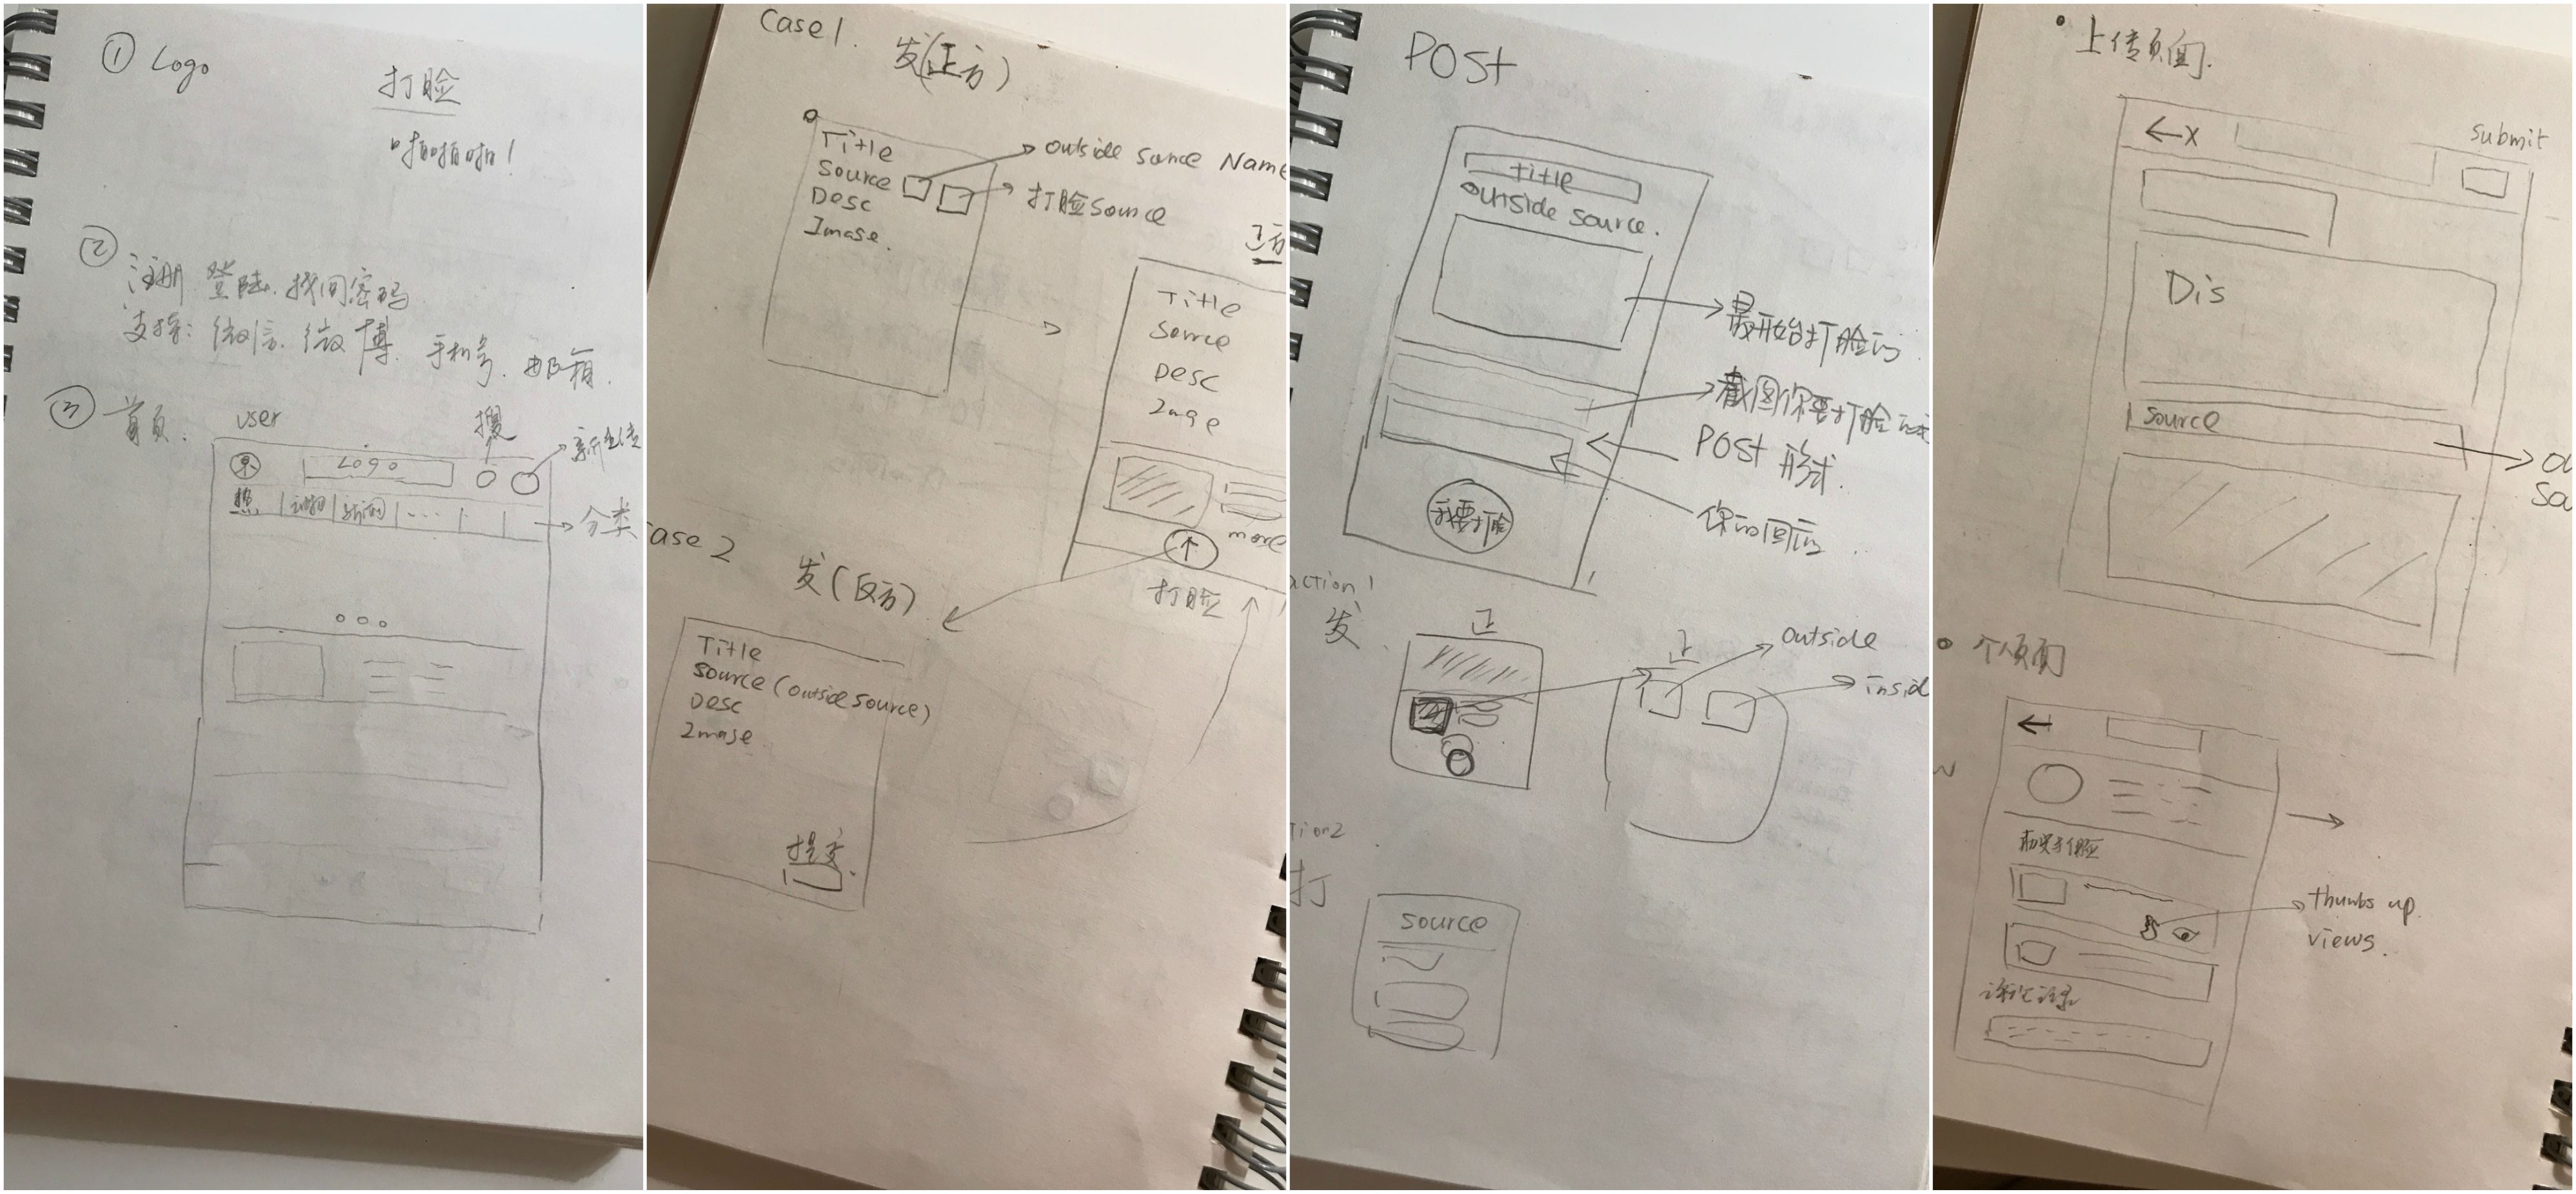 ① Logo
打脸
啪啪啪!
② 注册 登陆. 找回密码
支持: 微信. 微博. 手机号. 邮箱.
③ 首页.
user
搜
Logo
热
新闻
...
分类
Case 1.
发(正方)
Title
Source
Desc
Image.
outside source Name
打脸 source
正方
Title
Source
Desc
Image
more
打脸
ase 2
发(反方)
Title
Source (outside source)
Desc
Image
提交
POST
title
outside source.
最开始打脸的
POST 形式.
你的回应
我要打脸
action 1
发
正
正
outside
insid
tion2
打
source
上传页面.
←X
submit
Dis
source
个人页面
thumbs up.
views.
评论记录